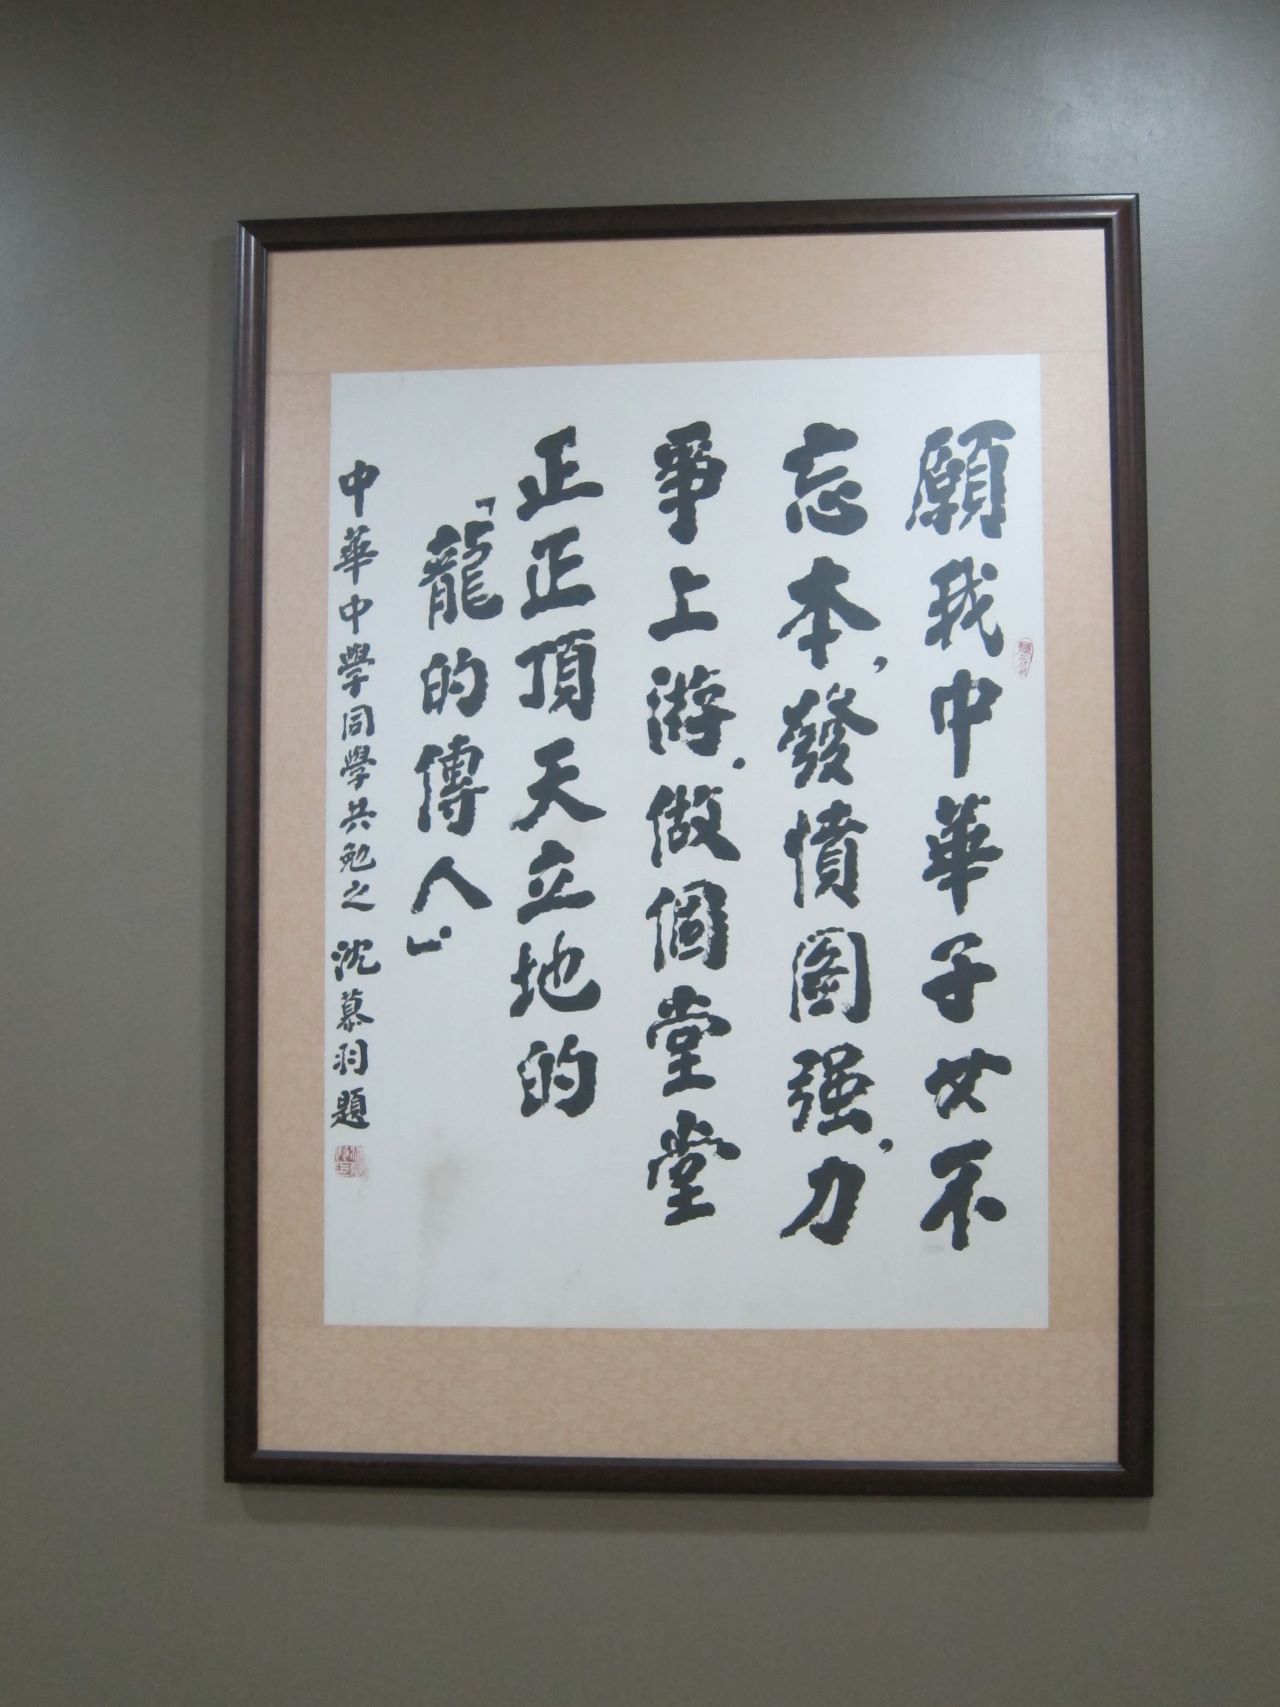 願我中華子女不
忘本，發憤圖强，力
爭上游，做個堂堂
正正頂天立地的
「龍的傳人」。
中華中學同學共勉之 沈慕羽題